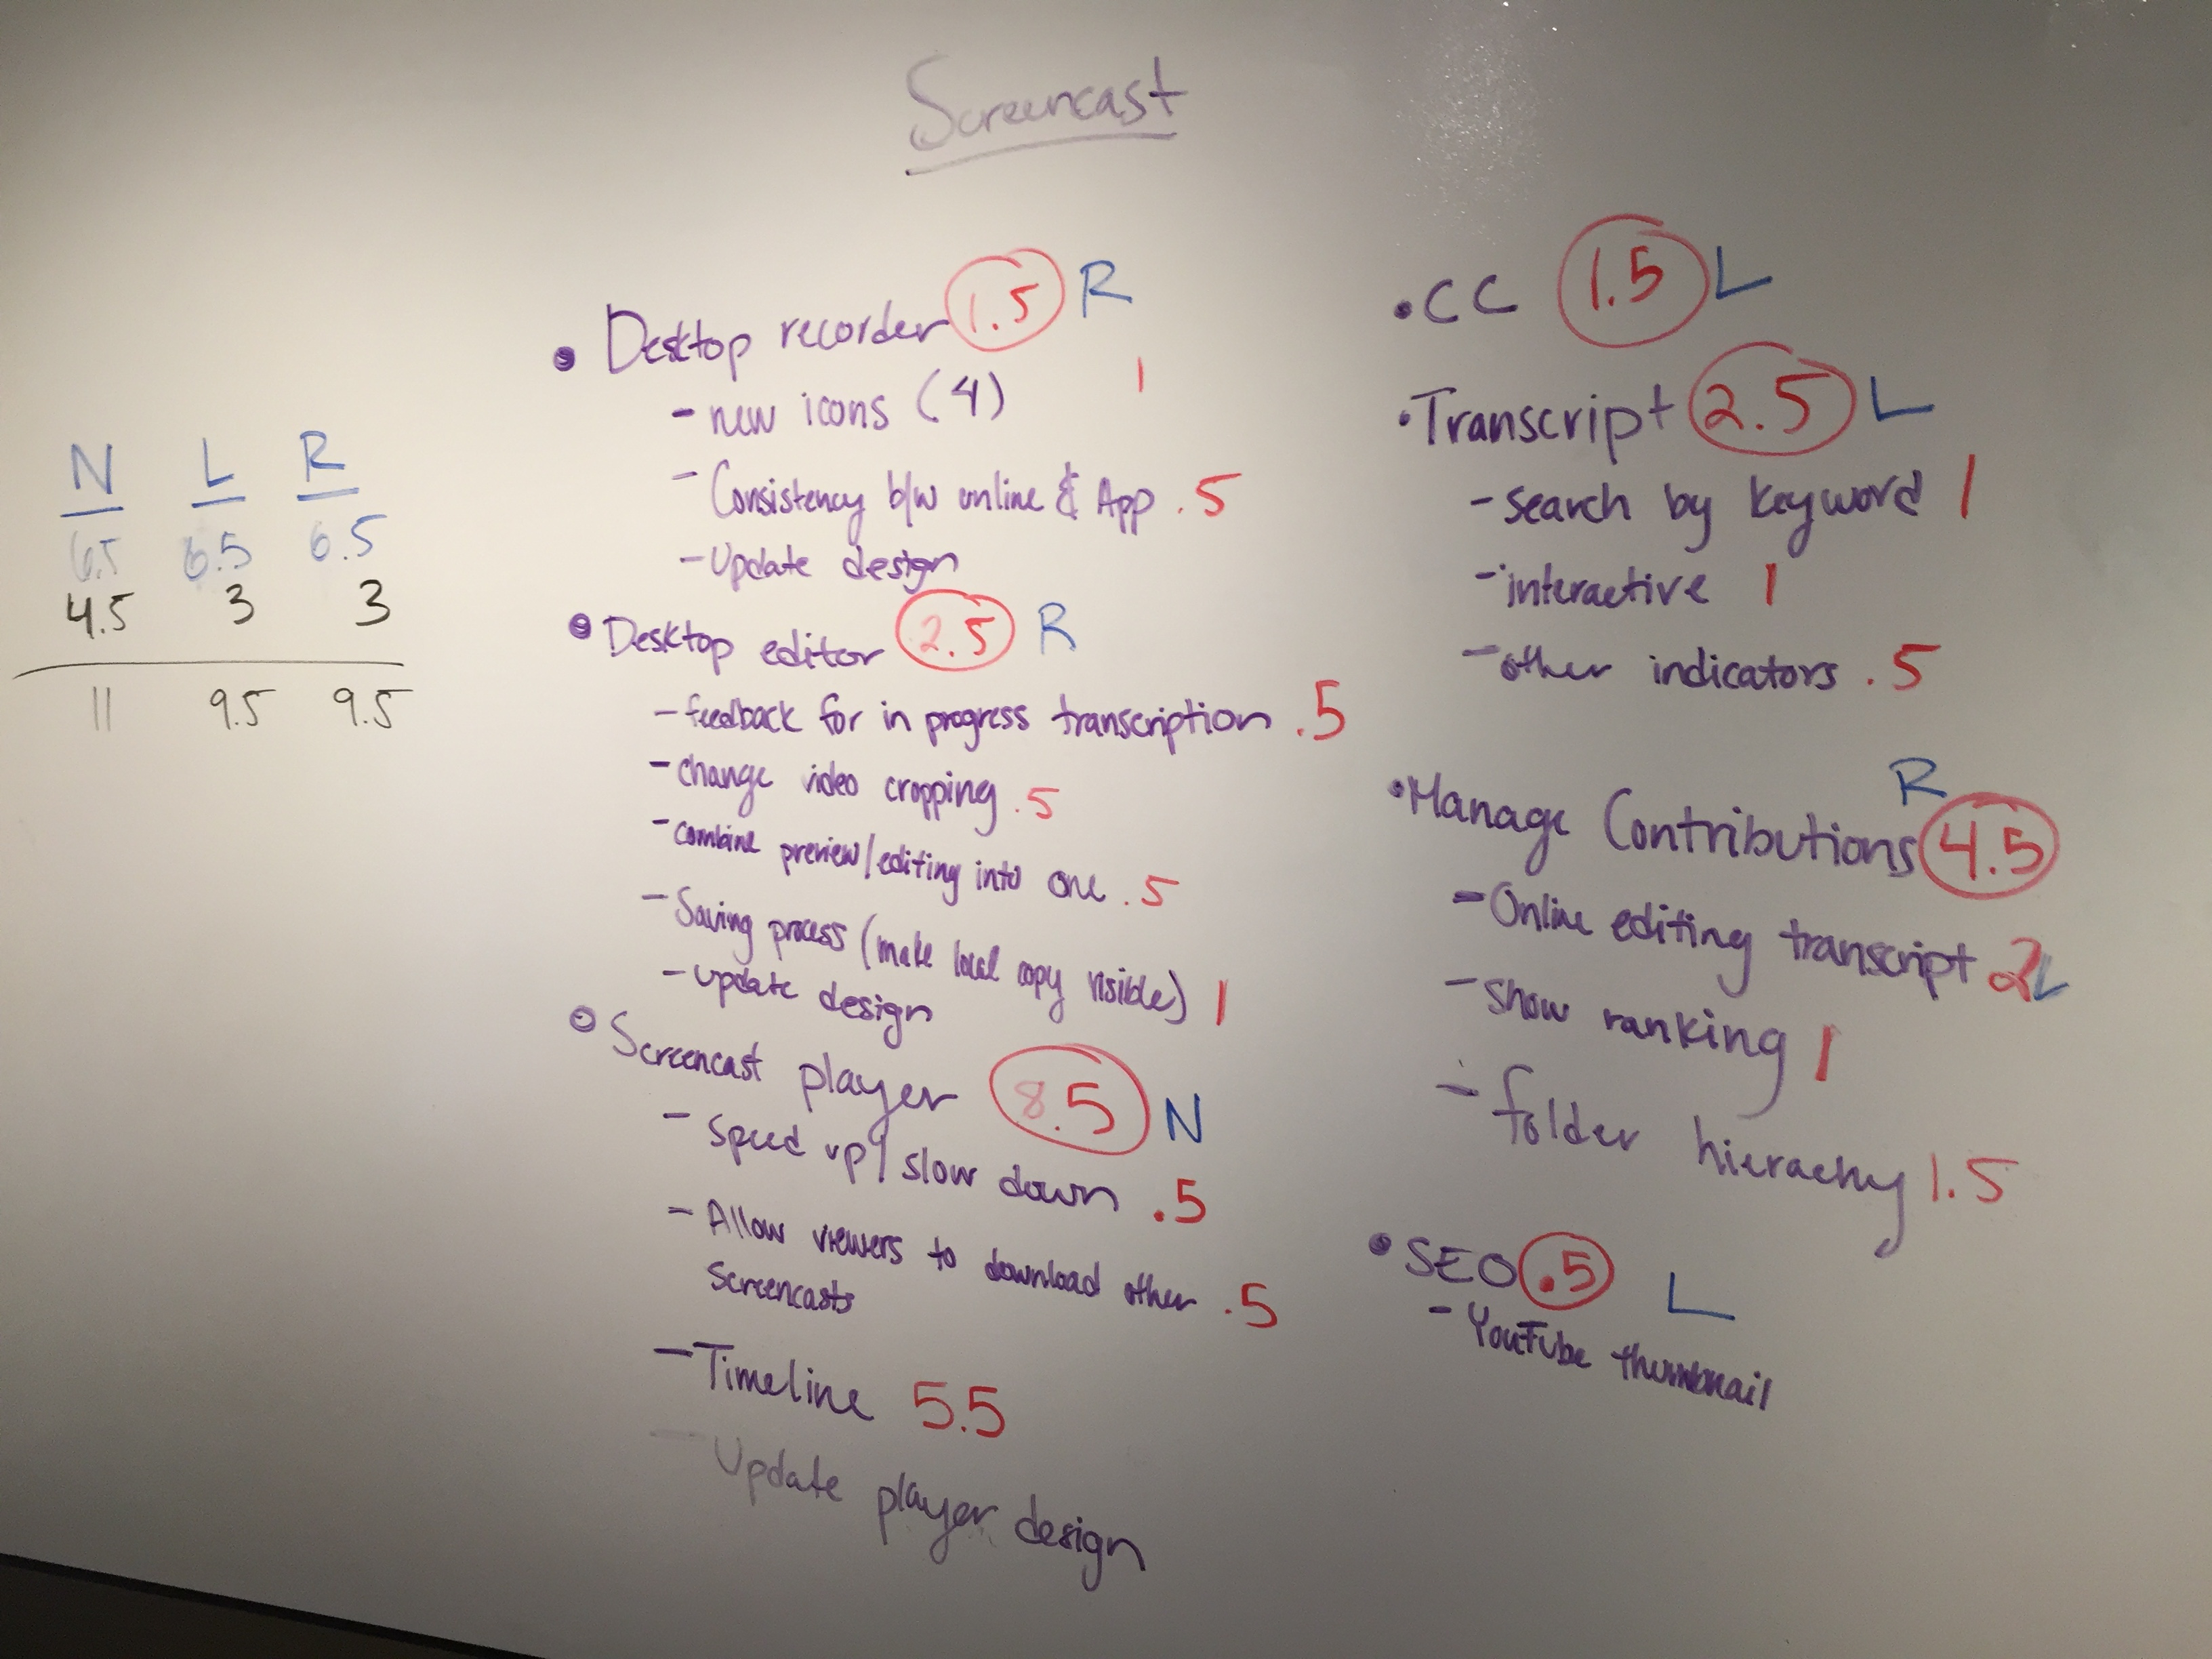 Screencast
N L R
6.5 6.5 6.5
4.5 3 3
11 9.5 9.5
• Desktop recorder 1.5 R
- new icons (4) 1
- Consistency b/w online & App .5
- Update design
• Desktop editor 2.5 R
- feedback for in progress transcription .5
- change video cropping .5
- combine preview/editing into one .5
- Saving process (make local copy visible) 1
- update design
• Screencast player 8.5 N
- Speed up/slow down .5
- Allow viewers to download other .5
screencasts
- Timeline 5.5
- Update player design
• CC 1.5 L
• Transcript 2.5 L
- search by keyword 1
- interactive 1
- other indicators .5
• Manage Contributions R 4.5
- Online editing transcript 2 L
- show ranking 1
- folder hierachy 1.5
• SEO .5 L
- YouTube thumbnail